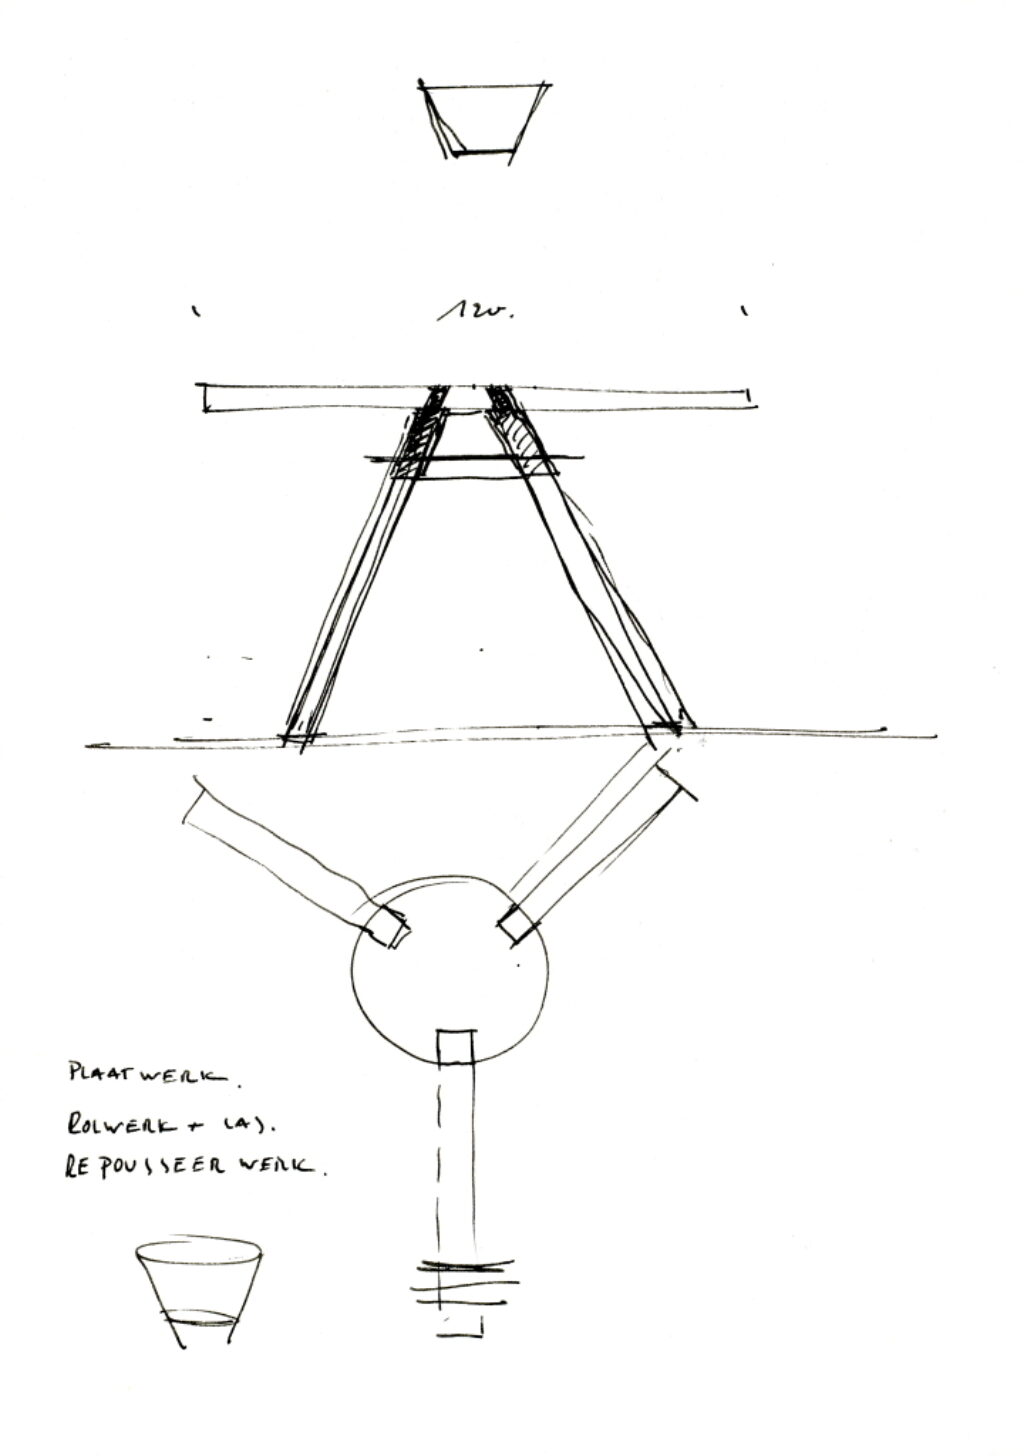 120.
PLAATWERK.
ROLWERK + LAS.
REPOUSSEER WERK.